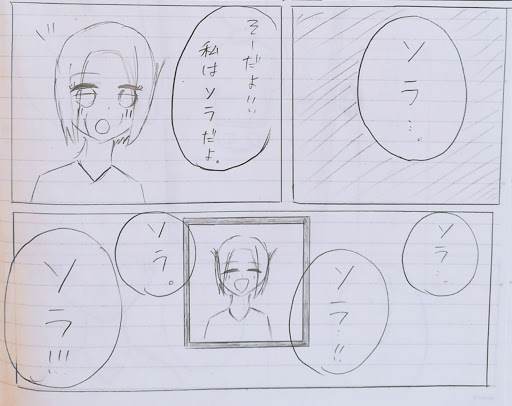 ソラ…。
そーだよ!!
私はソラだよ。
ソラ…。
ソラ…!!
ソラ。
ソラ!!!